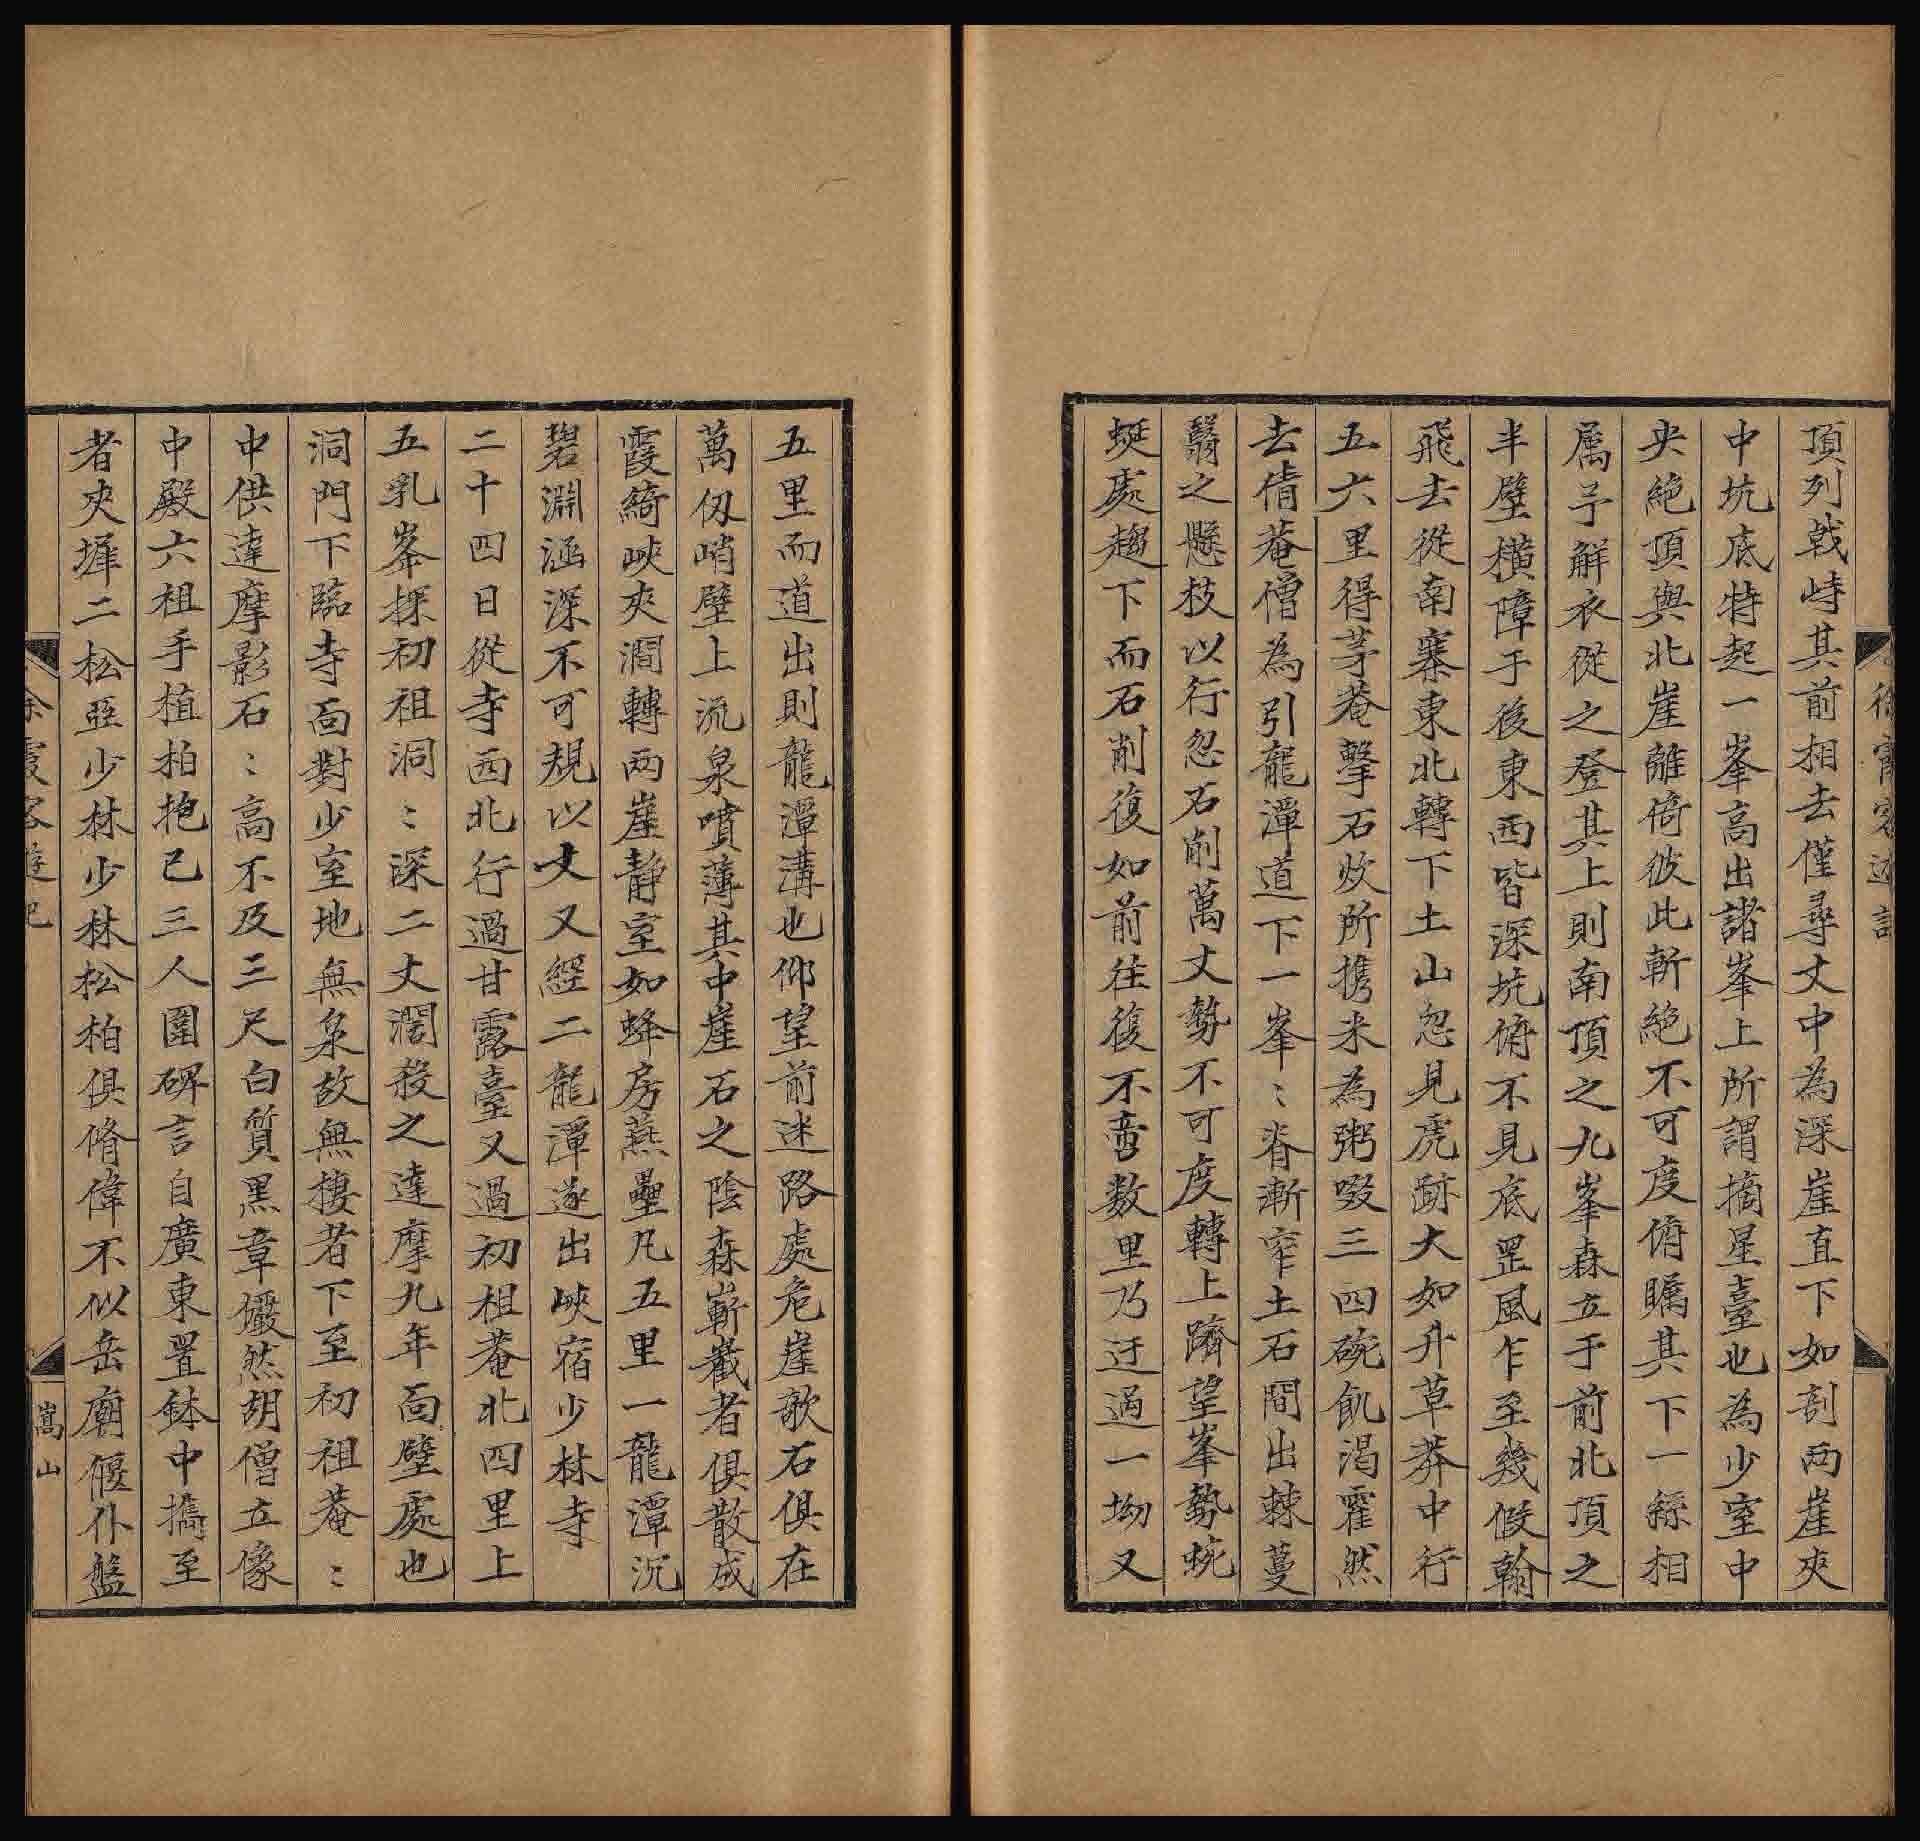 頂列戟峙其前相去僅尋丈中為深崖直下如剖両崖夾
中坑底特起一峯高出諸峯上所謂摘星臺也為少室中
央絶頂與北崖離倚彼此斬絶不可度俯矚其下一絲相
属予解衣從之登其上則南頂之九峯森立于前北頂之
半壁橫障于後東西皆深坑俯不見底罡風乍至幾假翰
飛去從南寨東北轉下土山忽見虎跡大如升草莽中行
五六里得茅菴擊石炊所攜米為粥啜三四碗飢渴霍然
去倩菴僧為引龍潭道下一峯〻脊漸窄土石間出棘蔓
翳之懸枝以行忽石削萬丈勢不可度轉上躋望峯勢蜿
蜓處趨下而石削復如前往復不啻数里乃迂過一坳又
五里而道出則龍潭溝也仰望前迷路處危崖欹石俱在
萬仭峭壁上流泉噴薄其中崖石之陰森嶄截者俱散成
霞綺峽夾澗轉両崖靜室如蜂房燕壘凡五里一龍潭沉
碧淵涵深不可規以丈又經二龍潭遂出峽宿少林寺
二十四日從寺西北行過甘露臺又過初祖菴北四里上
五乳峯探初祖洞〻深二丈濶殺之達摩九年面壁處也
洞門下臨寺面對少室地無泉故無棲者下至初祖菴〻
中供達摩影石〻高不及三尺白質黑章儼然胡僧立像
中殿六祖手植柏抱已三人圍碑言自廣東置鉢中攜至
者夾墀二松亞少林少林松柏俱脩偉不似岳廟偃仆盤
嵩山